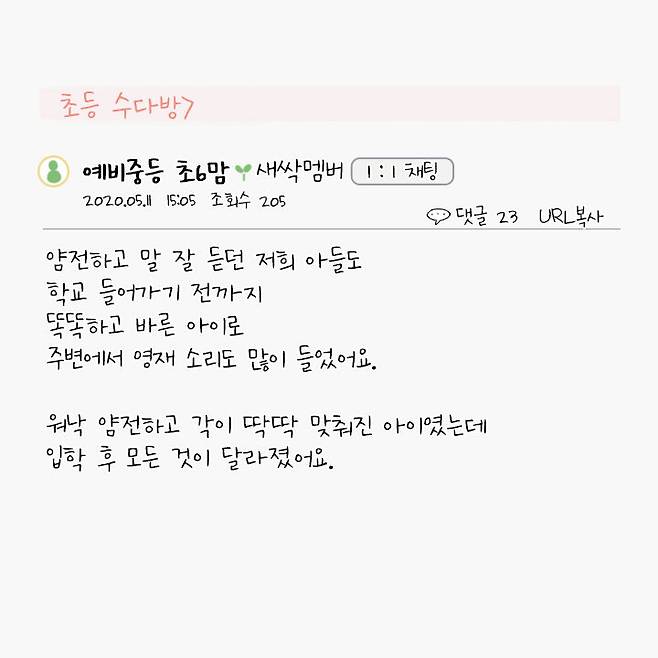 초등 수다방>
예비중등 초6맘 새싹멤버 1:1 채팅
2020.05.11 15:05 조회수 205
댓글 23 URL복사
얌전하고 말 잘 듣던 저희 아들도
학교 들어가기 전까지
똑똑하고 바른 아이로
주변에서 영재 소리도 많이 들었어요.
워낙 얌전하고 각이 딱딱 맞춰진 아이였는데
입학 후 모든 것이 달라졌어요.